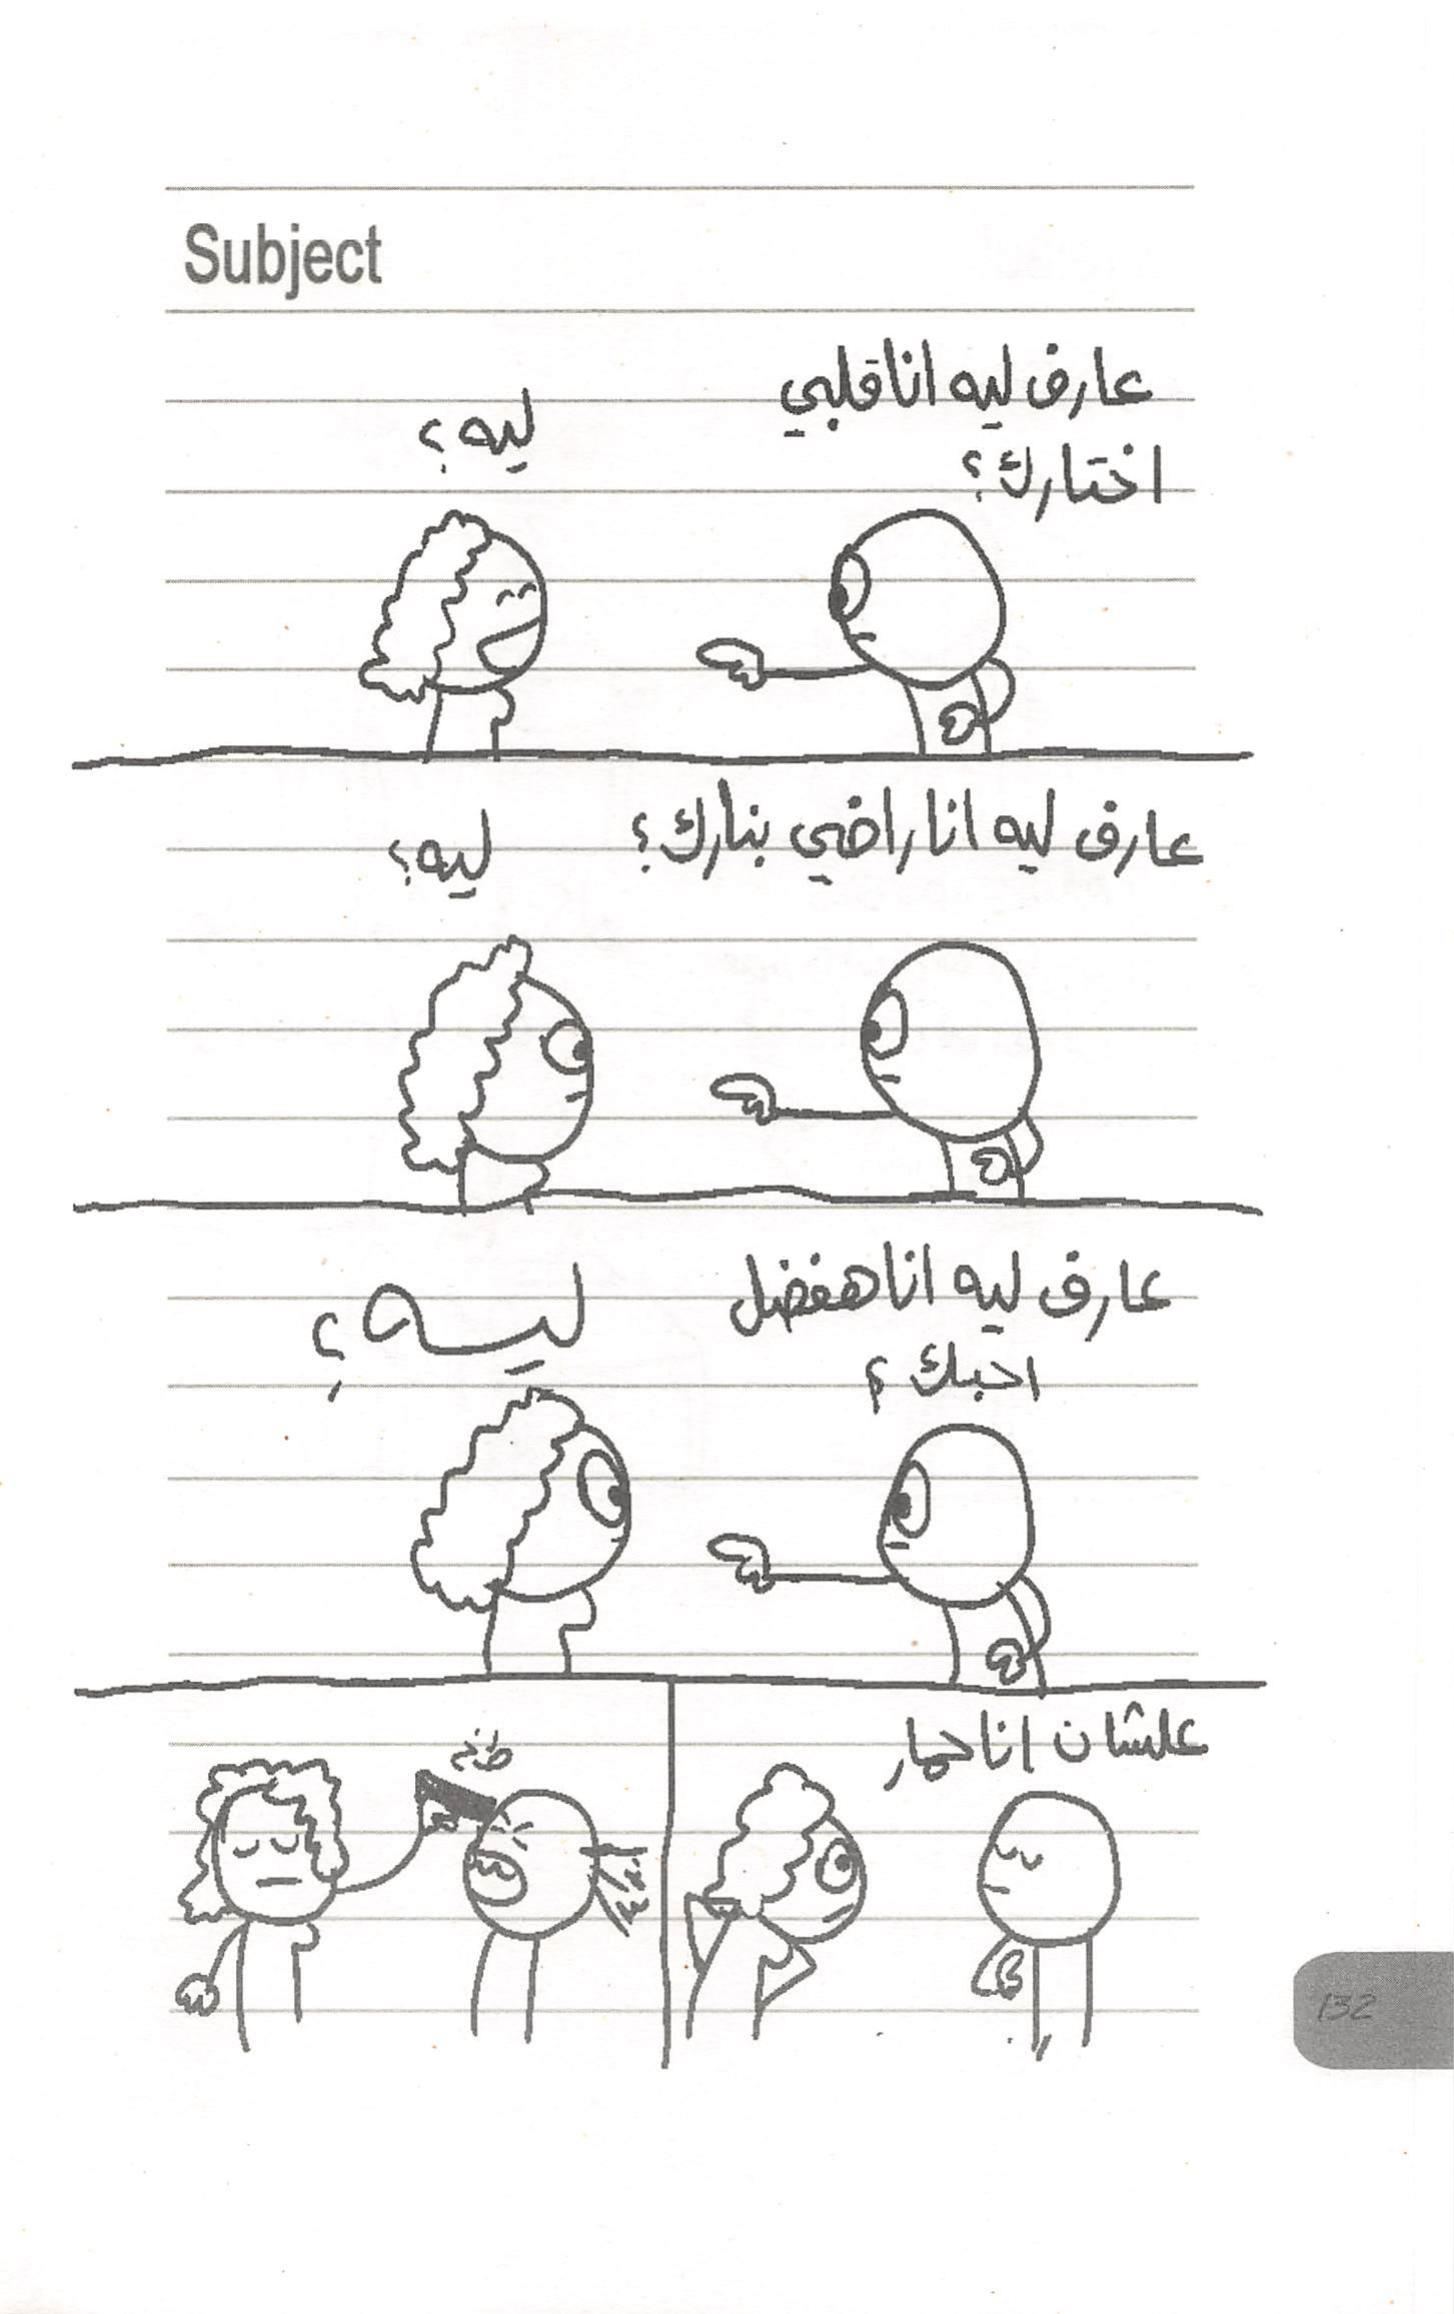 Subject
عارف ليه انا قلبي
اختارك؟
ليه؟
عارف ليه انا راضي بنارك؟
ليه؟
عارف ليه انا هفضل
احبك؟
ليــه؟
علشان انا حمار
طخ
132